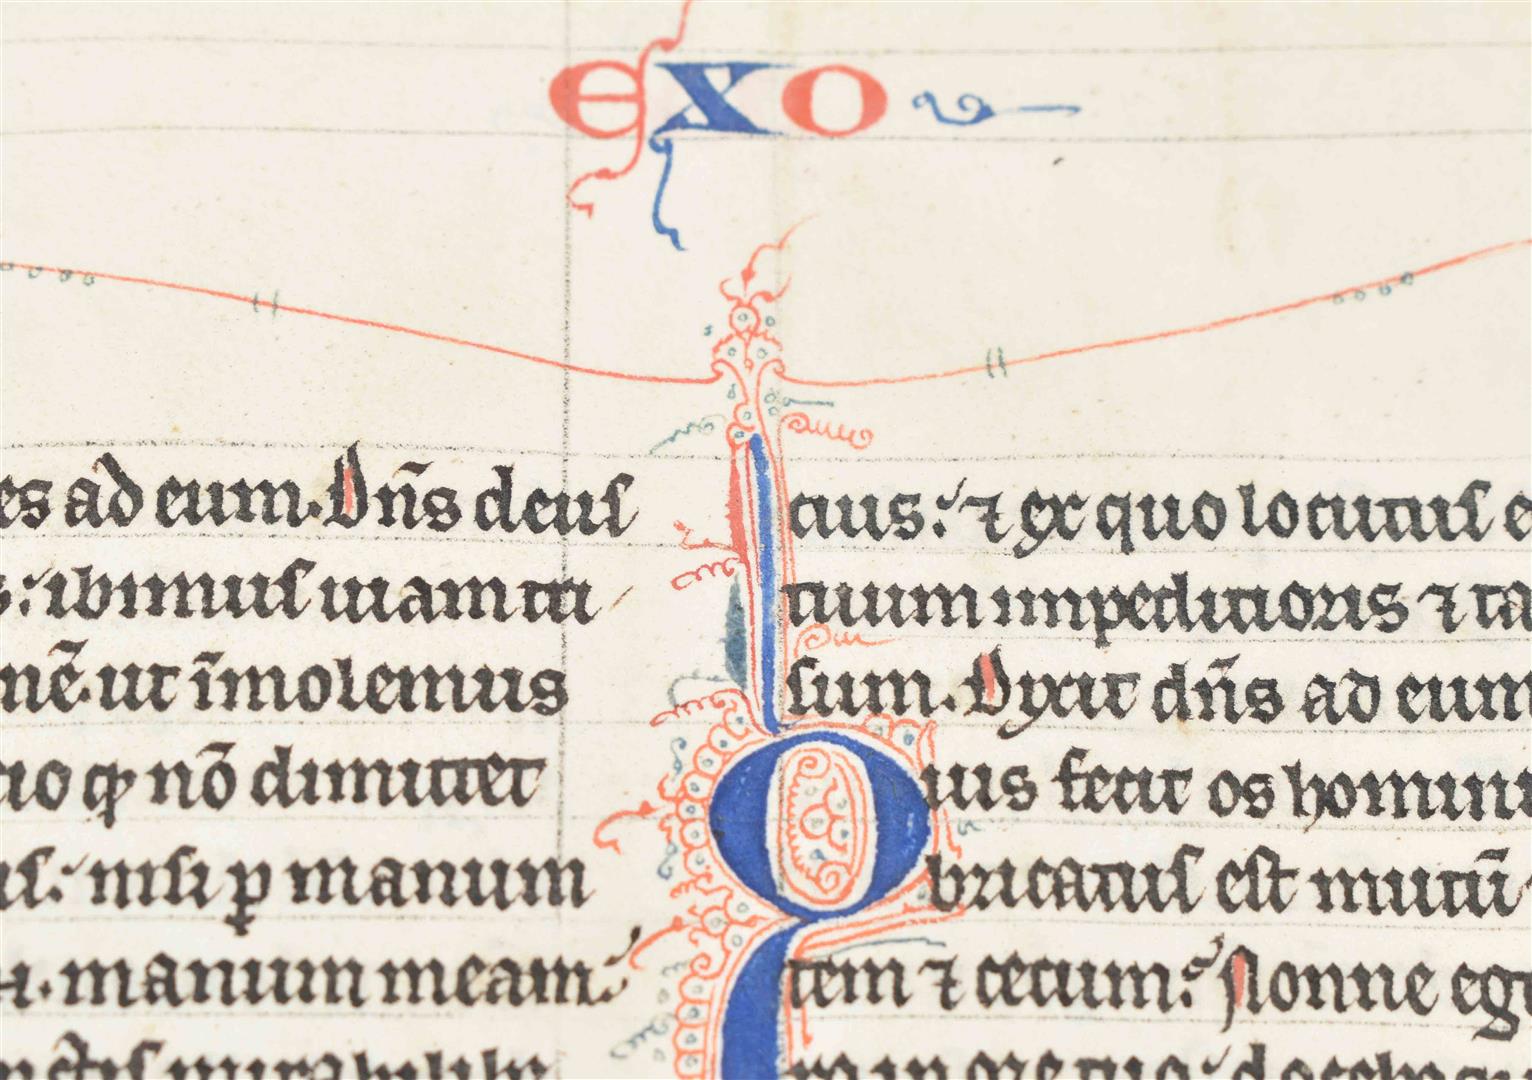 exo
es ad eum. Dn̄s deus
ibimus uiam tri
ut īmolemus
nō dimittet
nisi ꝑ manum
manum meam
tius: ⁊ ex quo locutus e
tiuum impeditioris ⁊ ta
sum. Dixit dn̄s ad eum
ius fecit os homini
bricatus est mutū
tem ⁊ cecum: Nonne eg